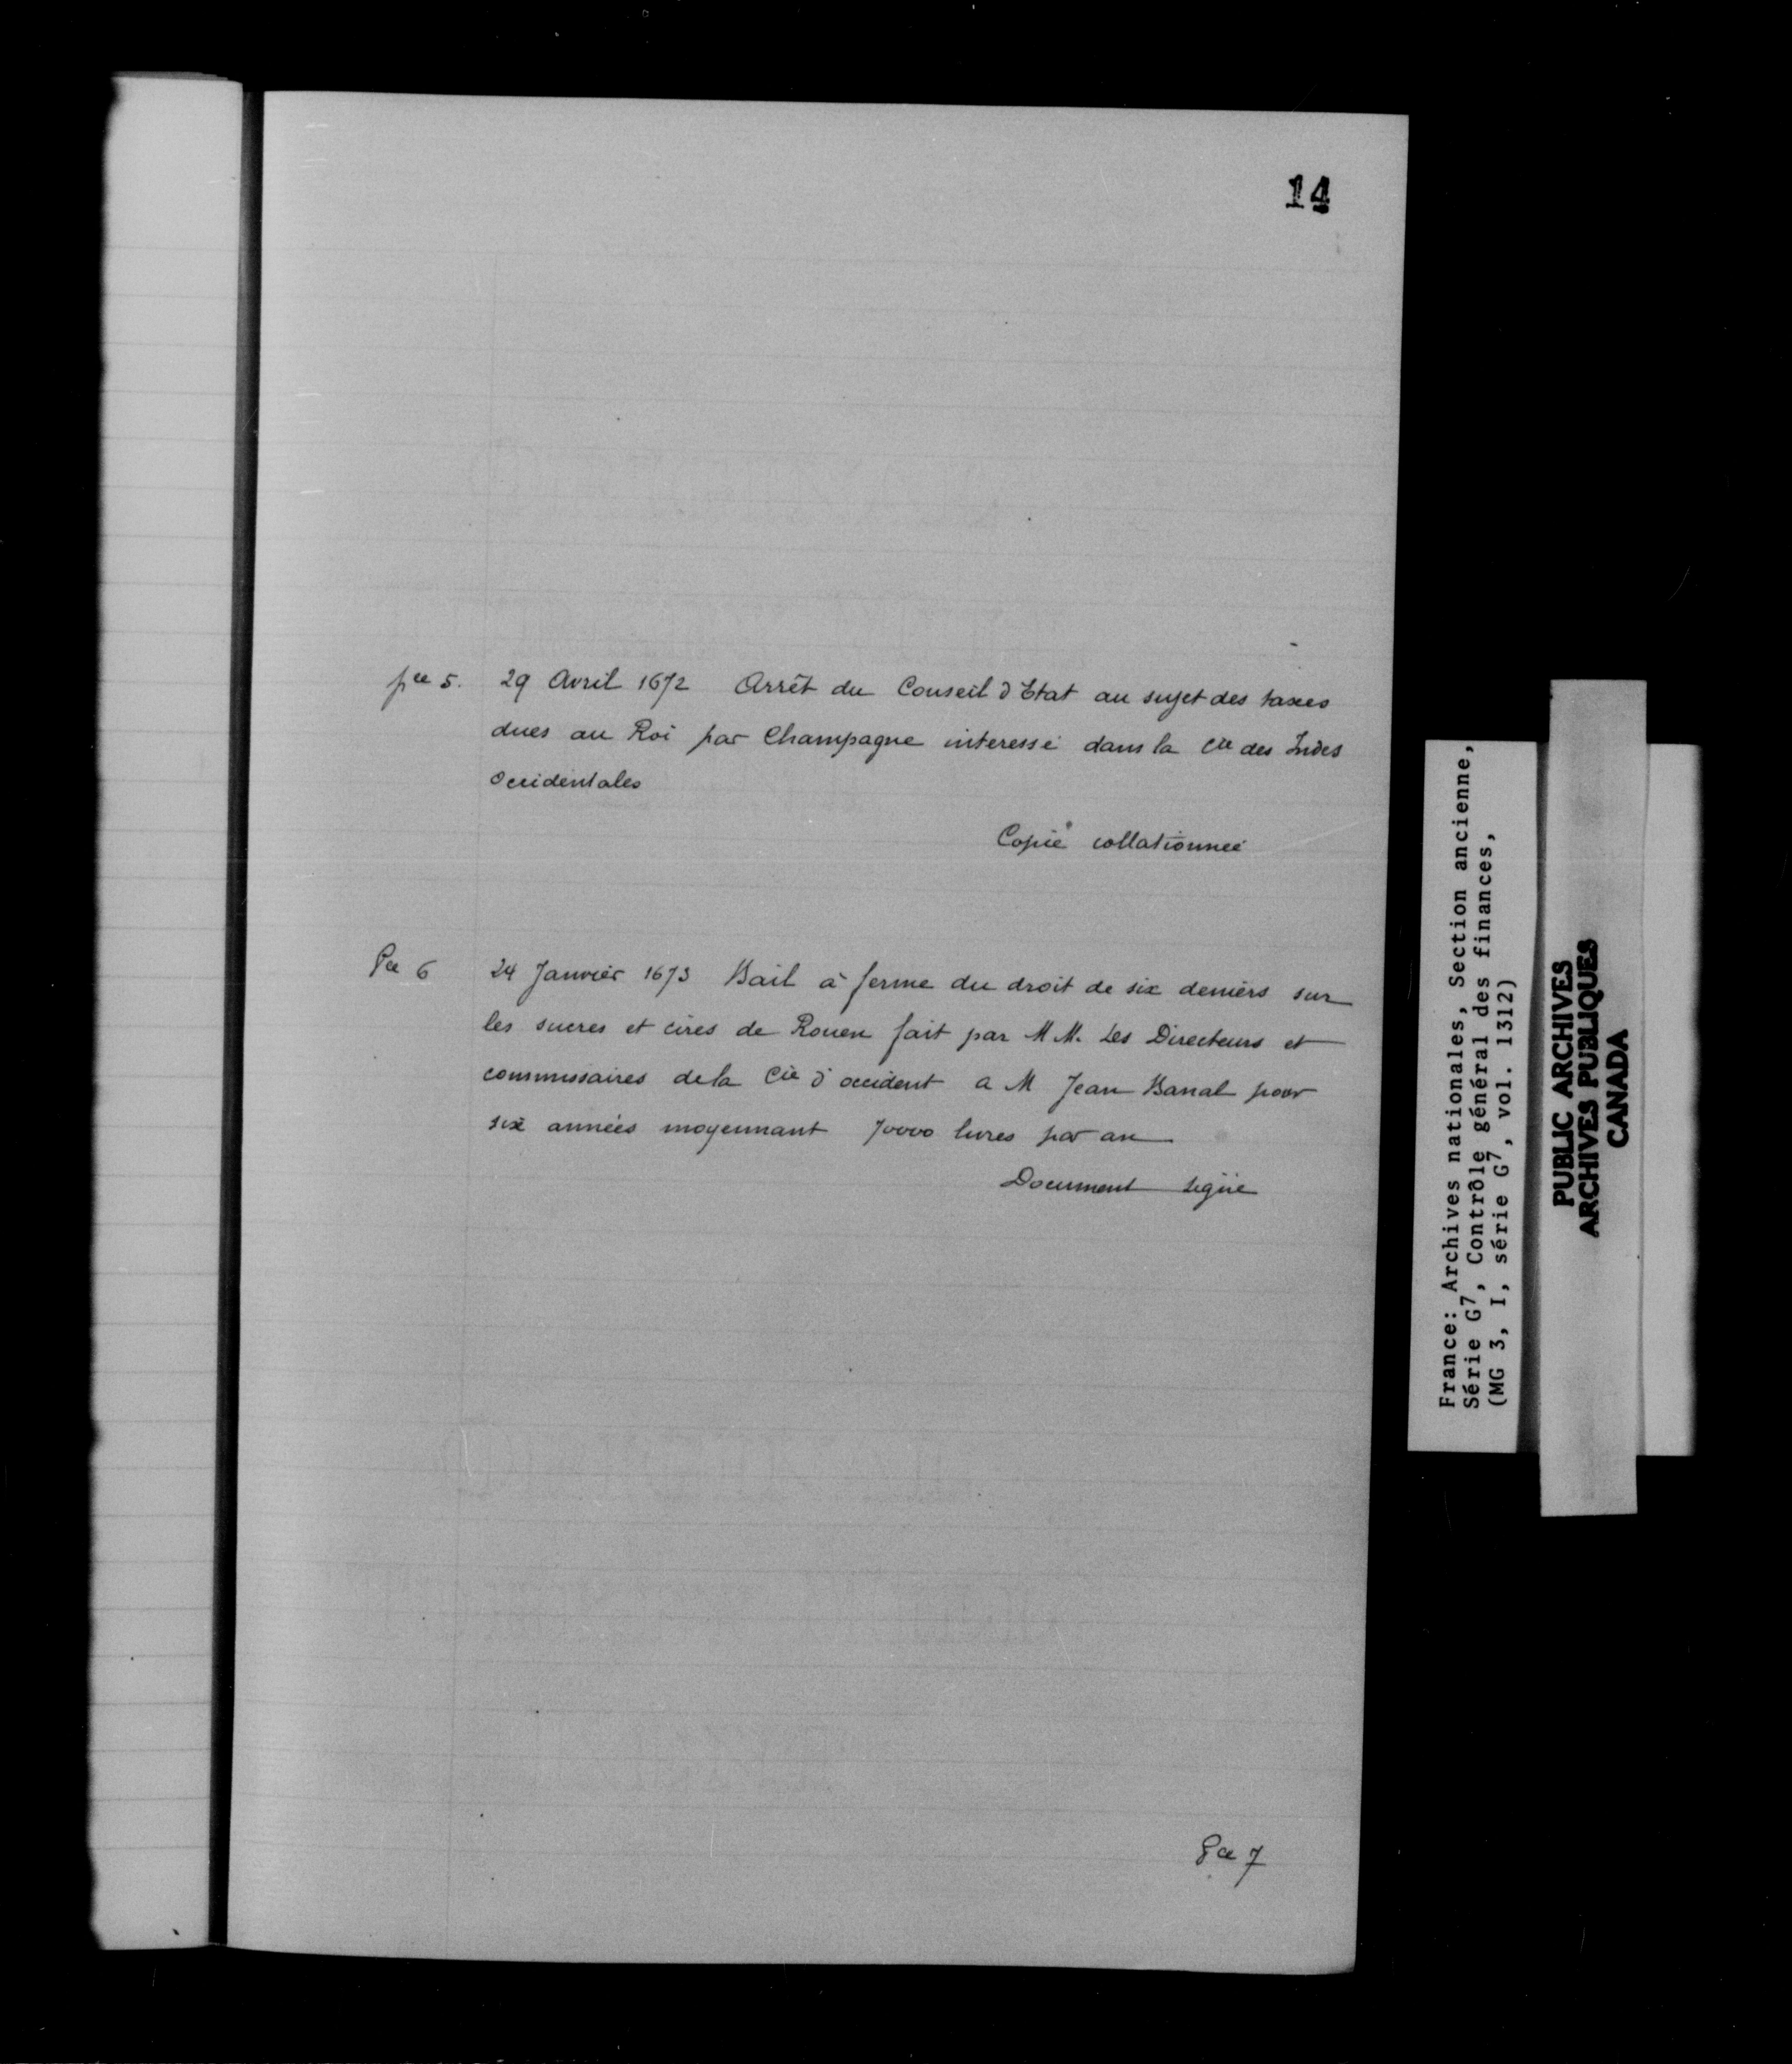 14
pce 5. 29 Avril 1672 Arrêt du Conseil d'Etat au sujet des taxes
dues au Roi par Champagne interessé dans la Cie des Indes
Occidentales
Copie collationnée
Pce 6 24 Janvier 1673 Bail à ferme du droit de six deniers sur
les sucres et cires de Rouen fait par M M. Les Directeurs et
commissaires de la Cie d'occident a M Jean Banal pour
six années moyennant 70000 livres par an
Document signé
Pce 7
France: Archives nationales, Section ancienne,
Série G7, Contrôle général des finances,
(MG 3, I, série G7, vol. 1312)
PUBLIC ARCHIVES
ARCHIVES PUBLIQUES
CANADA